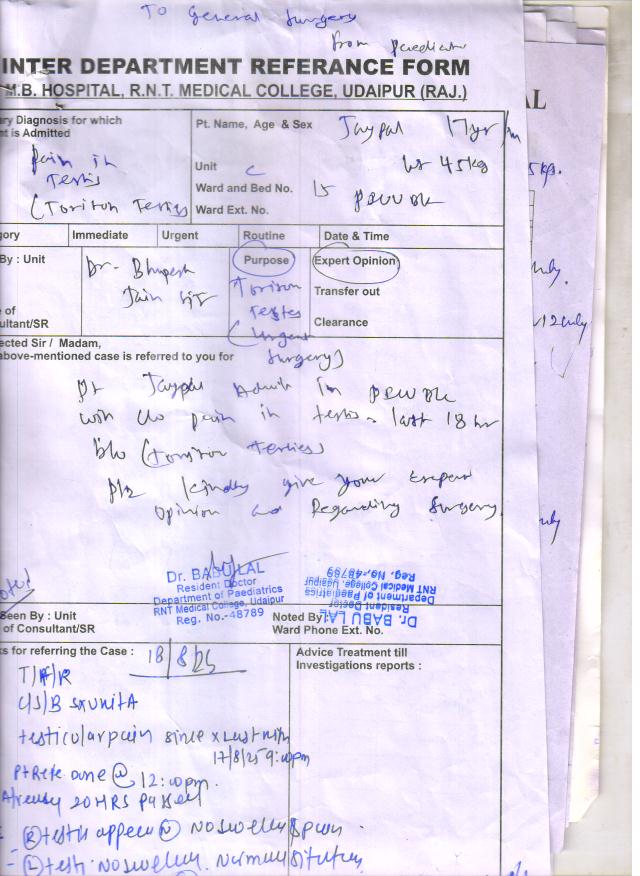 TO General Surgery
from paediatric
INTER DEPARTMENT REFERANCE FORM
M.B. HOSPITAL, R.N.T. MEDICAL COLLEGE, UDAIPUR (RAJ.)
ry Diagnosis for which
nt is Admitted
Pain in
Testis
(Torsion Testis
Pt. Name, Age & Sex Jaypal 17yr/m
Unit C wt 45kg
Ward and Bed No. 15
Ward Ext. No.
gory Immediate Urgent Routine Date & Time
By : Unit
Dr- Bhupesh
Jain
Purpose
Expert Opinion
Torsion
Testes
(Urgent
Surgery)
Transfer out
Clearance
e of
sultant/SR
ected Sir / Madam,
above-mentioned case is referred to you for
Pt Jaypal Admit in
with c/o pain in testis last 18 hr
(Torsion Testies)
plz kindly give your Expert
opinion Regarding Surgery
Dr. BABU LAL
Resident Doctor
Department of Paediatrics
RNT Medical College, Udaipur
Reg. No.-48789
Dr. BABU LAL
Resident Doctor
Department of Paediatrics
RNT Medical College, Udaipur
Reg. No.-48789
Seen By : Unit
of Consultant/SR
Noted By
Ward Phone Ext. No.
s for referring the Case : 18/8/25
Advice Treatment till
Investigations reports :
C/S/B
testicular pain since last night
17/8/25 9:00pm
12:00pm
Already 20 HRS passed
(R) testis appear (N) No swelling pain
- (L) testi. No swelling.
AL
5 kg.